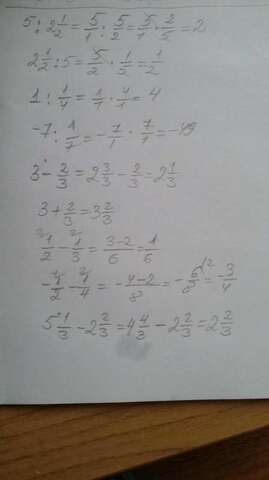 5 : 2 1/2 = 5/1 : 5/2 = 5/1 · 2/5 = 2
2 1/2 : 5 = 5/2 · 1/5 = 1/2
1 : 1/4 = 1/1 · 4/1 = 4
-7 : 1/7 = -7/1 · 7/1 = -49
3 - 2/3 = 2 3/3 - 2/3 = 2 1/3
3 + 2/3 = 3 2/3
1/2 - 1/3 = 3-2/6 = 1/6
= -4-2/8 = -6/8 = -3/4
5 1/3 - 2 2/3 = 4 4/3 - 2 2/3 = 2 2/3